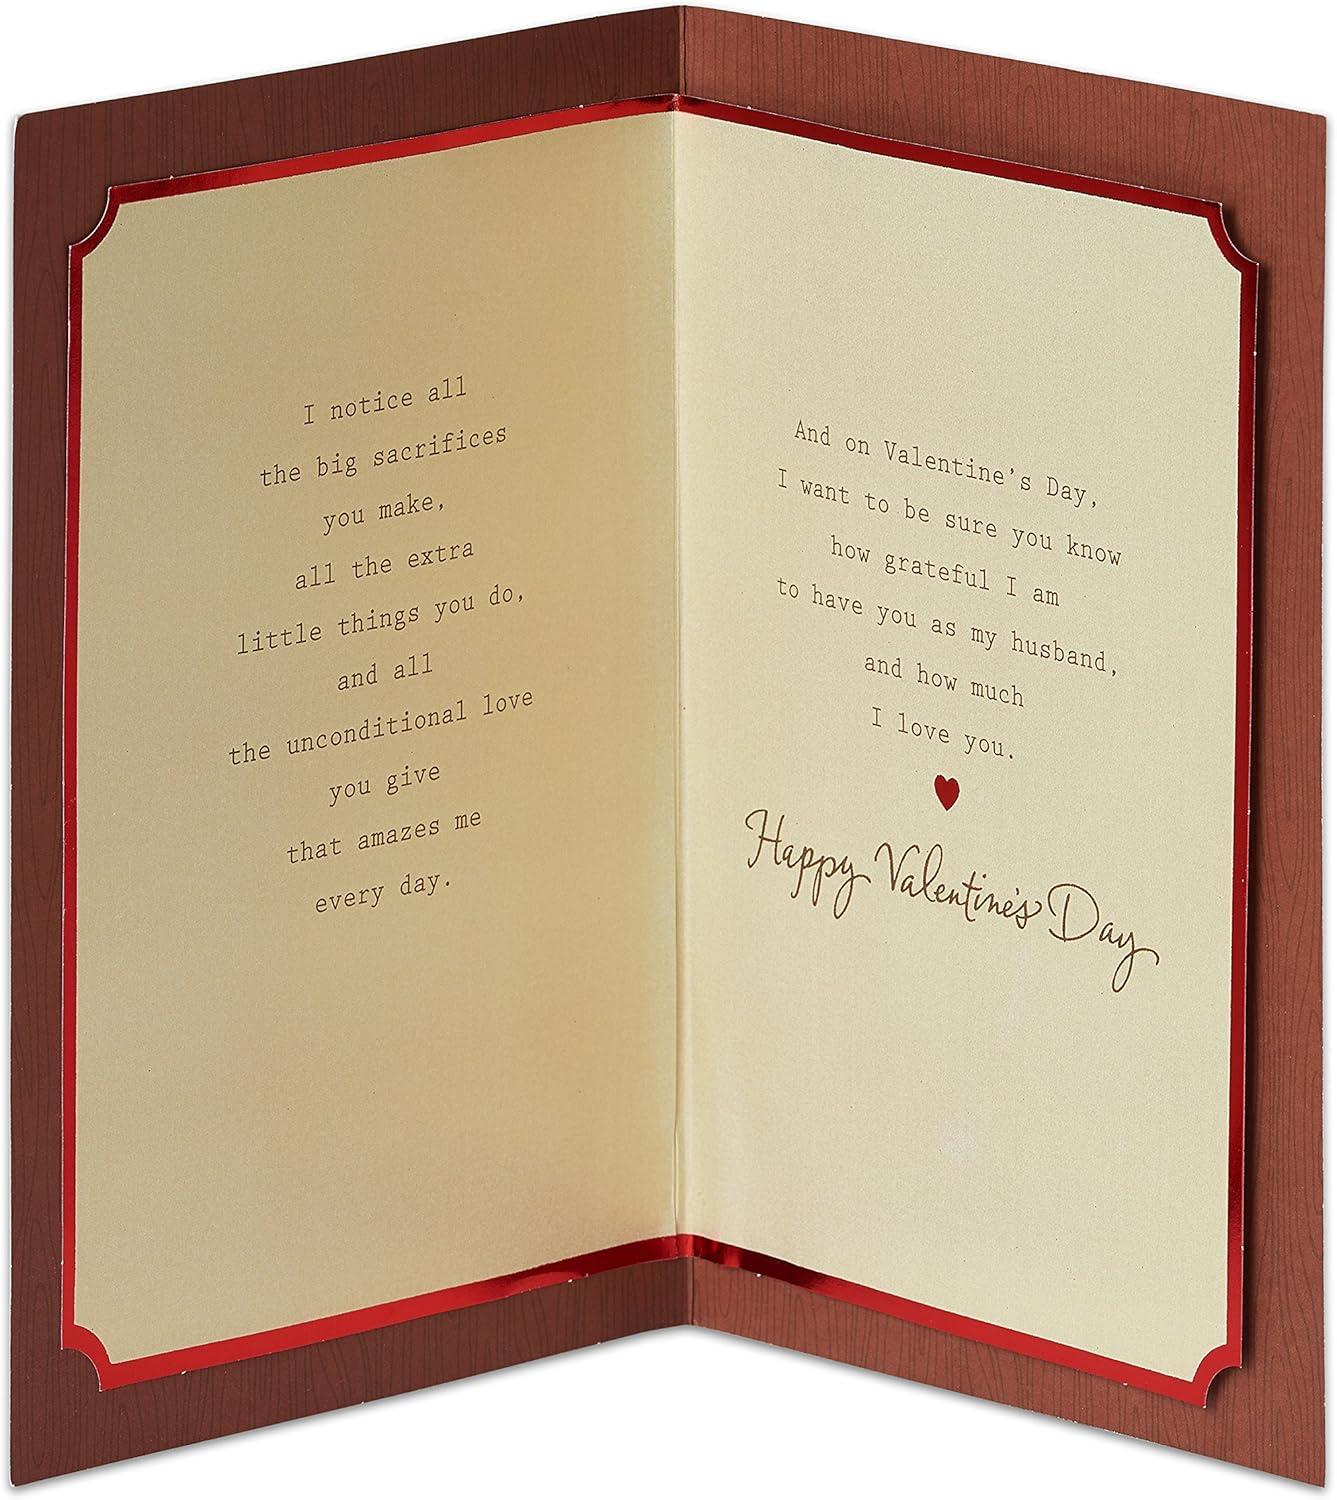 I notice all
the big sacrifices
you make,
all the extra
little things you do,
and all
the unconditional love
you give
that amazes me
every day.
And on Valentine's Day,
I want to be sure you know
how grateful I am
to have you as my husband,
and how much
I love you.
Happy Valentine's Day